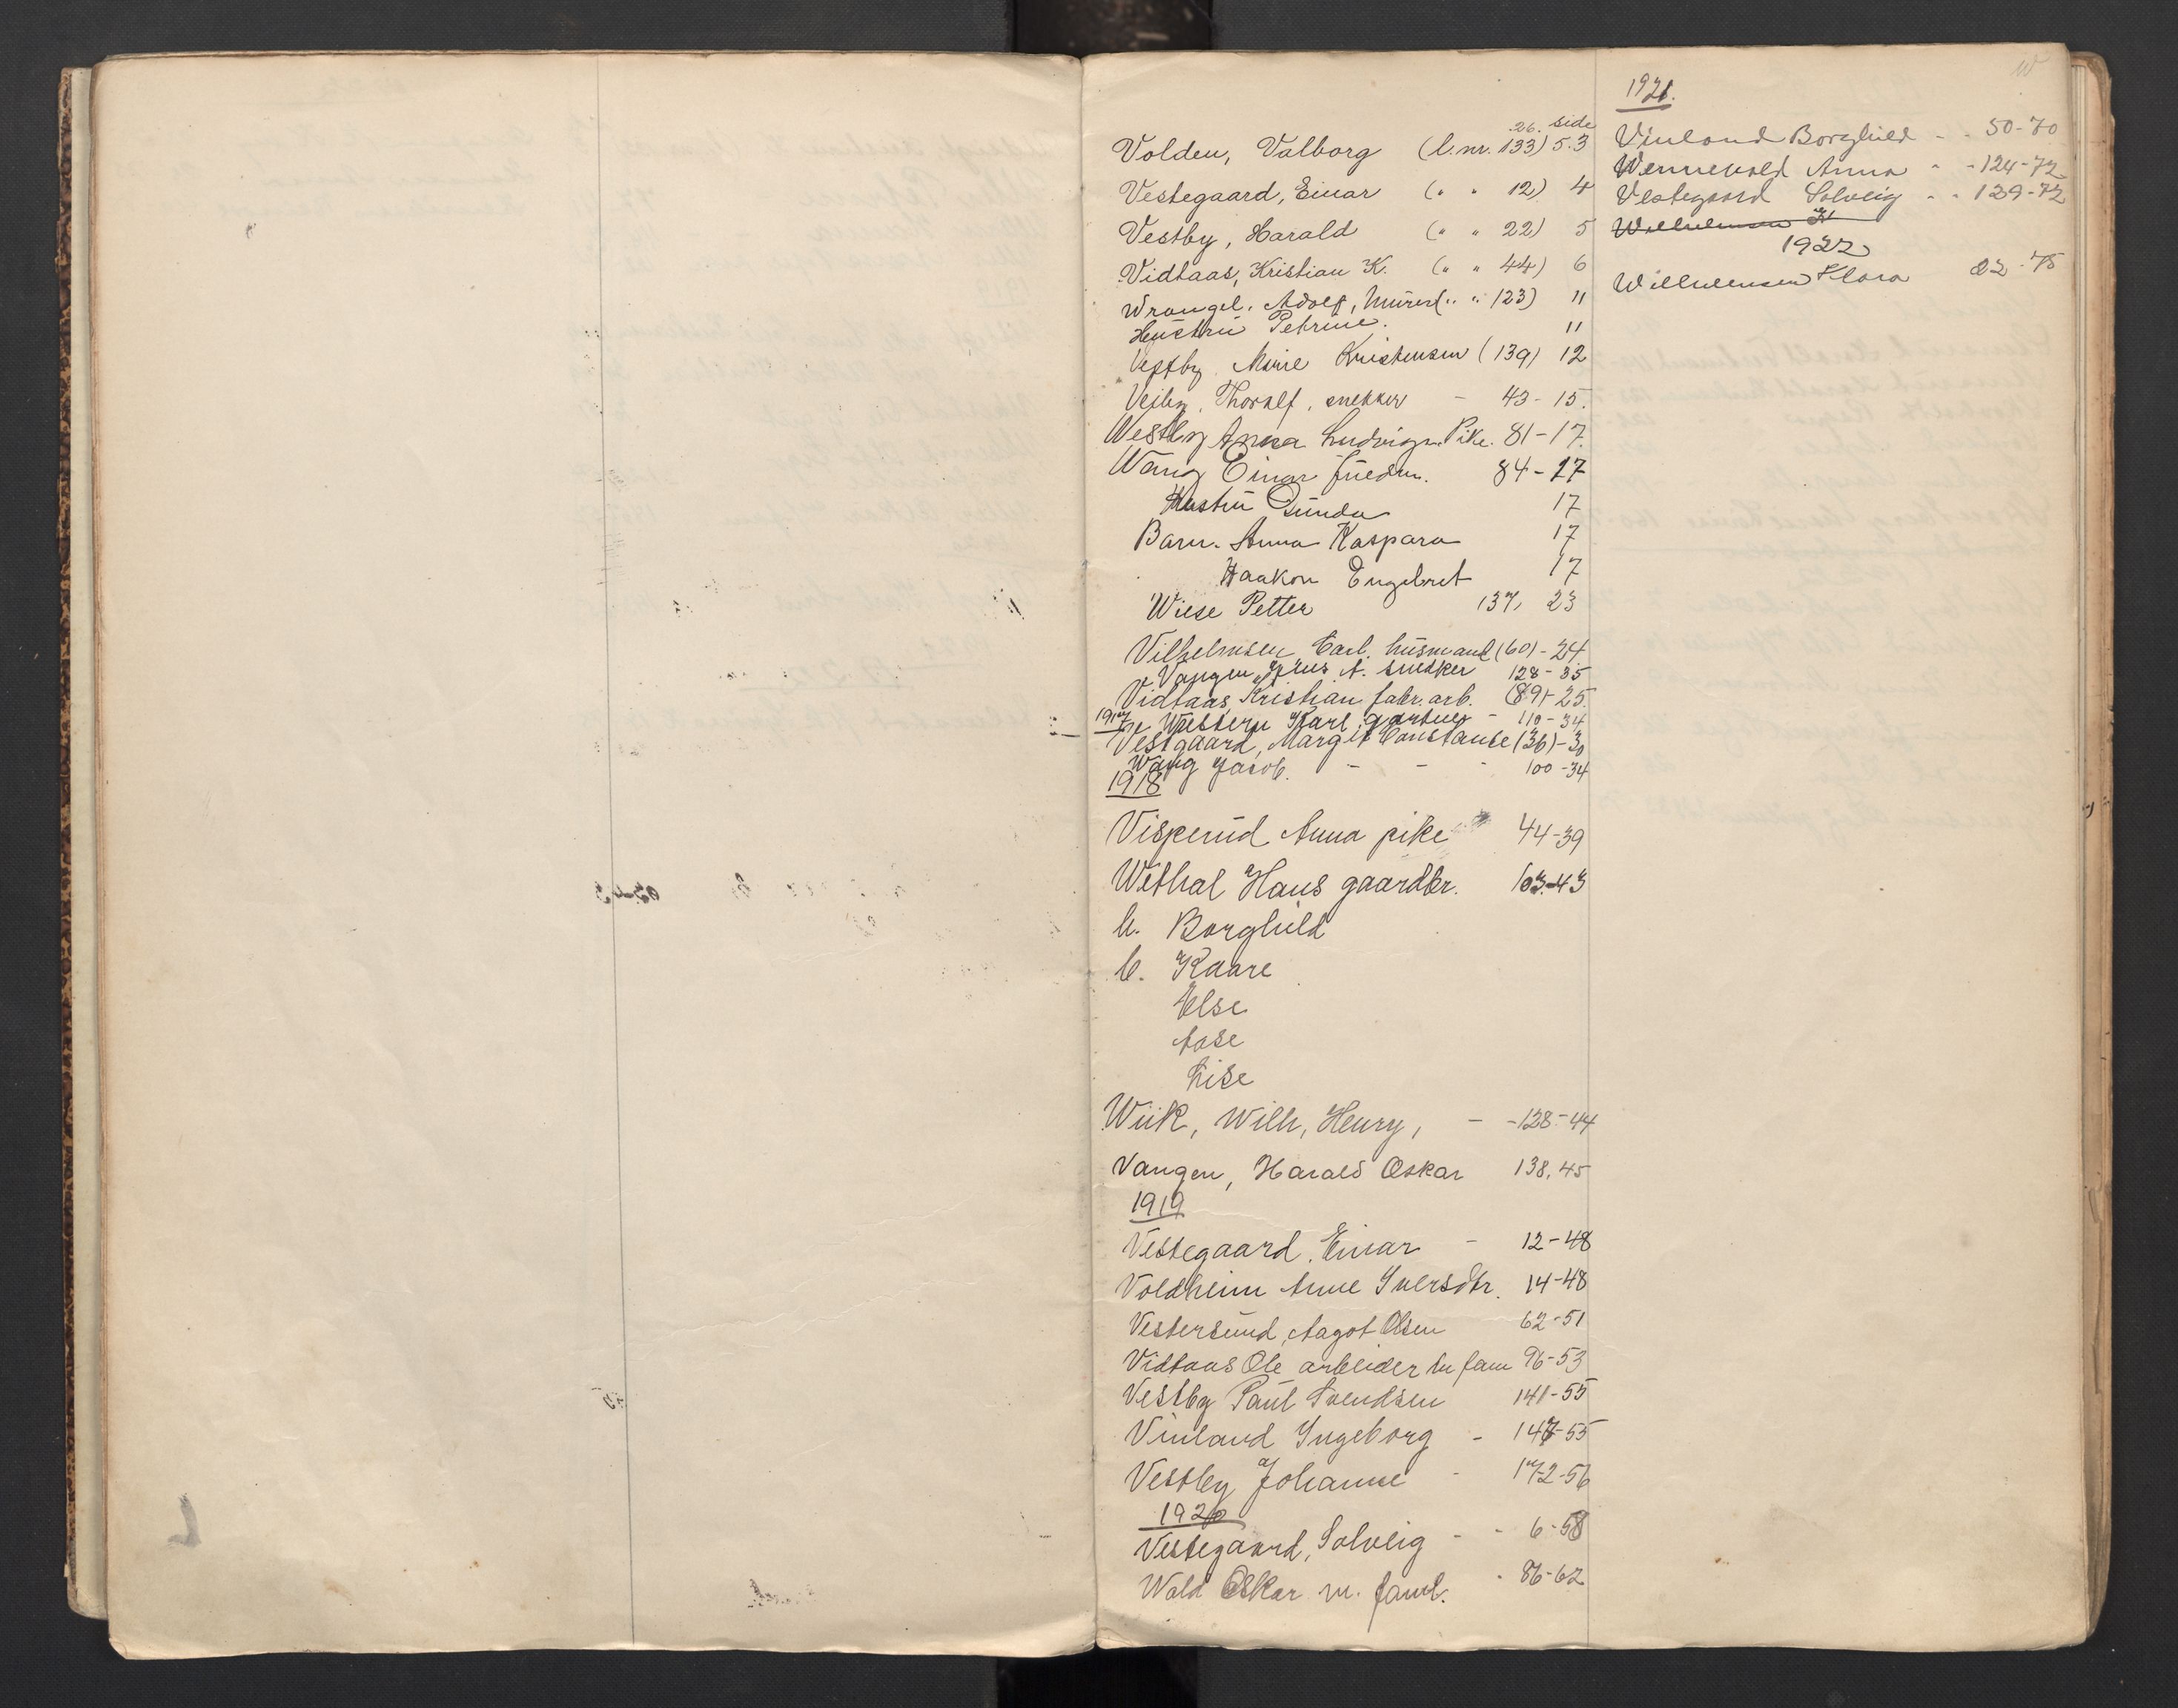 W
26. side
Volden, Valborg (l.nr. 133) 5.3
Vestegaard, Einar (" " 12) 4
Vestby, Harald (" " 22) 5
Vidtaas, Kristian K. (" " 44) 6
Wrangel. Adolf, Murer (" " 123) 11
Hustru Petrine. 11
Vestby Marie Kristensen (139) 12
Vejby, Thoralf, snekker - 43 - 15.
Westby Anna Ludvigs. Pike. 81-17.
Wang Einar 84-17
Hustru Gunda 17
Barn. Anna Kaspara 17
Haakon Engebret 17
Wiese Petter 137, 23
Vilhelmsen Carl. husmand (60) - 24
Vangen Jens A. snedker 128-35
Vidtaas, Kristian fabr. arb. (89)-25.
1917 Western Karl, gartner - 110-34
Vestgaard, Margit Constanse (36)-30
Wang Jacob. - - - 100-34
1918
Viskerud Anna pike 44-39
Wethal Hans gaardbr. 103-43
h. Borghild
b. Kaare
Else
Aase
Lise
Wiik, Wilh, Henry, - -128-44
Vangen, Harald Oskar 138.45
1919
Vestegaard, Einar - 12-48
Voldheim Anne Iversdtr. 14-48
Vestersund, Aagot Olsen 62-51
Vidtaas Ole arbeider m fam 96-53
Vestby Paul Svendsen 141-55
Vinland Ingeborg - 147-55
Vestby Johanne - 172-56
1920
Vestegaard, Solveig - - 6-58
Wold Oskar m. faml. - 86-62
1921.
Vinland Borghild - - 50-70
Wennevold Anna - - 124-72
Vestegaard Solveig - - 129-72
Wilhelmsen Kl
1922
Wilhelmsen Klara 22-75